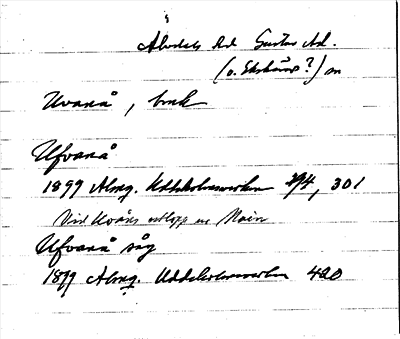 Älvdals hd Gustav Ad.
(v. Ekshärad?) sn
Uvanå, bruk
Ufvanå
1899 Almq. Uddeholmsverken 2/4, 301
Vid Uvåns utlopp ur Näin
Ufvanå såg
1899 Almq. Uddeholmsverken 420